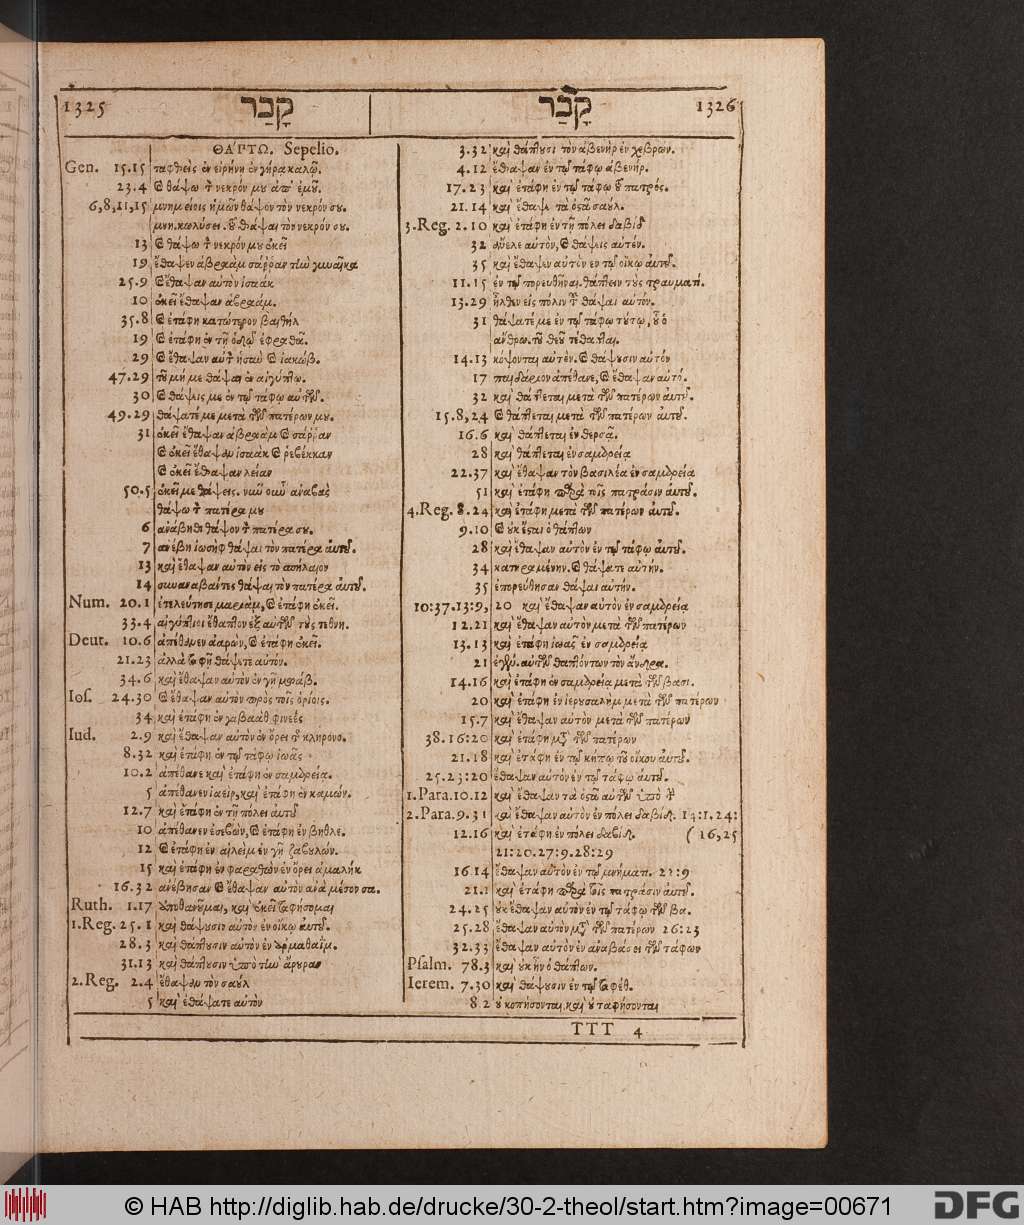 1325 קָבַר
קָבַר 1326
ΘΑΠΤΩ. Sepelio.
Gen. 15.15 ταφεὶς ἐν εἰρήνῃ ἐν γήρᾳ καλῷ.
23.4 καὶ θάψω τὸν νεκρόν μου ἀπ' ἐμοῦ.
6,8,11,15 μνημείοις ἡμῶν θάψον τὸν νεκρόν σου.
κωλύσει τοῦ θάψαι τὸν νεκρόν σου.
13 καὶ θάψω τὸν νεκρόν μου ἐκεῖ
19 ἔθαψεν ἀβραὰμ σάρραν τὴν γυναῖκα
25.9 καὶ ἔθαψαν αὐτὸν ἰσαὰκ
10 ἐκεῖ ἔθαψαν ἀβραάμ.
35.8 καὶ ἐτάφη κατώτερον βαιθὴλ
19 καὶ ἐτάφη ἐν τῇ ὁδῷ ἐφραθᾶ.
29 καὶ ἔθαψαν αὐτὸν ἠσαῦ καὶ ἰακώβ.
47.29 τοῦ μή με θάψαι ἐν αἰγύπτῳ.
30 καὶ θάψεις με ἐν τῷ τάφῳ αὐτῶν.
49.29 θάψατέ με μετὰ τῶν πατέρων μου.
31 ἐκεῖ ἔθαψαν ἀβραὰμ καὶ σάρραν
καὶ ἐκεῖ ἔθαψαν ἰσαὰκ καὶ ρεβέκκαν
καὶ ἐκεῖ ἔθαψαν λείαν
50.5 ἐκεῖ με θάψεις. νῦν οὖν ἀναβὰς
θάψω τὸν πατέρα μου
6 ἀνάβηθι θάψον τὸν πατέρα σου.
7 ἀνέβη ἰωσὴφ θάψαι τὸν πατέρα αὐτοῦ.
13 καὶ ἔθαψαν αὐτὸν εἰς τὸ σπήλαιον
14 συναναβάντες θάψαι τὸν πατέρα αὐτοῦ.
Num. 20.1 ἐτελεύτησε μαριὰμ, καὶ ἐτάφη ἐκεῖ.
33.4 αἰγύπτιοι ἔθαπτον ἐξ αὐτῶν τοὺς τεθνη.
Deut. 10.6 ἀπέθανεν ἀαρὼν, καὶ ἐτάφη ἐκεῖ.
21.23 ἀλλὰ ταφῇ θάψετε αὐτόν.
34.6 καὶ ἔθαψαν αὐτὸν ἐν γῇ μωάβ.
Ios. 24.30 καὶ ἔθαψαν αὐτὸν πρὸς τοῖς ὁρίοις.
34 καὶ ἐτάφη ἐν γαβαὰθ φινεὲς
Iud. 2.9 καὶ ἔθαψαν αὐτὸν ἐν ὄρει τῆς κληρονο.
8.32 καὶ ἐτάφη ἐν τῷ τάφῳ ἰωὰς
10.2 ἀπέθανε καὶ ἐτάφη ἐν σαμαρείᾳ.
5 ἀπέθανεν ἰαειρ, καὶ ἐτάφη ἐν καμών.
12.7 καὶ ἐτάφη ἐν τῇ πόλει αὐτοῦ
10 ἀπέθανεν ἐσεβὼν, καὶ ἐτάφη ἐν βηθλε.
12 καὶ ἐτάφη ἐν αἰλεὶμ ἐν γῇ ζαβουλών.
15 καὶ ἐτάφη ἐν φαραθὼν ἐν ὄρει ἀμαλὴκ
16.32 ἀνέβησαν καὶ ἔθαψαν αὐτὸν ἀνὰ μέσον σα.
Ruth. 1.17 ἀποθανοῦμαι, κἀκεῖ ταφήσομαι
1.Reg. 25.1 καὶ θάψουσιν αὐτὸν ἐν οἴκῳ αὐτοῦ.
28.3 καὶ θάπτουσιν αὐτὸν ἐν ἀρμαθαίμ.
31.13 καὶ θάπτουσιν ὑπὸ τὴν ἄρουραν
2.Reg. 2.4 ἔθαψαν τὸν σαοὺλ
5 καὶ ἐθάψατε αὐτὸν
3.32 καὶ θάπτουσι τὸν ἀβενὴρ ἐν χεβρών.
4.12 ἔθαψαν ἐν τῷ τάφῳ ἀβενήρ.
17.23 καὶ ἐτάφη ἐν τῷ τάφῳ τοῦ πατρός.
21.14 καὶ ἔθαψε τὰ ὀστᾶ σαούλ.
3.Reg. 2.10 καὶ ἐτάφη ἐν τῇ πόλει δαβὶδ
32 ἄνελε αὐτὸν, καὶ θάψεις αὐτόν.
35 καὶ ἔθαψεν αὐτὸν ἐν τῷ οἴκῳ αὐτοῦ.
11.15 ἐν τῷ πορευθῆναι θάπτειν τοὺς τραυματί.
13.29 ἦλθεν εἰς πόλιν τοῦ θάψαι αὐτόν.
31 θάψατέ με ἐν τῷ τάφῳ τούτῳ, οὗ ὁ
ἄνθρω. τοῦ θεοῦ τέθαπται.
14.13 κόψονται αὐτὸν. καὶ θάψουσιν αὐτόν
17 παιδάριον ἀπέθανε, καὶ ἔθαψαν αὐτό.
32 καὶ θάπτεται μετὰ τῶν πατέρων αὐτοῦ.
15.8,24 καὶ θάπτεται μετὰ τῶν πατέρων αὐτοῦ.
16.6 καὶ θάπτεται ἐν θερσᾷ.
28 καὶ θάπτεται ἐν σαμαρείᾳ
22.37 καὶ ἔθαψαν τὸν βασιλέα ἐν σαμαρείᾳ
51 καὶ ἐτάφη παρὰ τοῖς πατράσιν αὐτοῦ.
4.Reg. 8.24 καὶ ἐτάφη μετὰ τῶν πατέρων αὐτοῦ.
9.10 καὶ οὐκ ἔσται ὁ θάπτων
28 καὶ ἔθαψαν αὐτὸν ἐν τῷ τάφῳ αὐτοῦ.
34 κατηραμένην. καὶ θάψατε αὐτήν.
35 ἐπορεύθησαν θάψαι αὐτήν.
10:37.13:9, 20 καὶ ἔθαψαν αὐτὸν ἐν σαμαρείᾳ
12.21 καὶ ἔθαψαν αὐτὸν μετὰ τῶν πατέρων
13.13 καὶ ἐτάφη ἰωὰς ἐν σαμαρείᾳ
21 ἐγέν. αὐτῶν θαπτόντων τὸν ἄνδρα.
14.16 καὶ ἐτάφη ἐν σαμαρείᾳ μετὰ τῶν βασι.
20 καὶ ἐτάφη ἐν ἱερουσαλὴμ μετὰ τῶν πατέρων
15.7 καὶ ἔθαψαν αὐτὸν μετὰ τῶν πατέρων
38.16:20 καὶ ἐτάφη μετὰ τῶν πατέρων
21.18 καὶ ἐτάφη ἐν τῷ κήπῳ τοῦ οἴκου αὐτοῦ.
25.23:20 ἔθαψαν αὐτὸν ἐν τῷ τάφῳ αὐτοῦ.
1.Para. 10.12 καὶ ἔθαψαν τὰ ὀστᾶ αὐτῶν ὑπὸ τὴν
2.Para. 9.31 καὶ ἔθαψαν αὐτὸν ἐν πόλει δαβίδ. 14:1.24:
12.16 καὶ ἐτάφη ἐν πόλει δαβίδ. (16,25
21:20.27:9.28:29
16.14 ἔθαψαν αὐτὸν ἐν τῷ μνήματι.
21.1 καὶ ἐτάφη παρὰ τοῖς πατράσιν αὐτοῦ.
24.25 οὐκ ἔθαψαν αὐτὸν ἐν τῷ τάφῳ τῶν βα.
25.28 ἔθαψαν αὐτὸν μετὰ τῶν πατέρων 26:23
32.33 ἔθαψαν αὐτὸν ἐν ἀναβάσει τῶν τάφων
Psalm. 78.3 καὶ οὐκ ἦν ὁ θάπτων.
Ierem. 7.30 καὶ θάψουσιν ἐν τῷ ταφέθ.
8.2 οὐ κοπήσονται, καὶ οὐ ταφήσονται
TTT 4
© HAB http://diglib.hab.de/drucke/30-2-theol/start.htm?image=00671
DFG